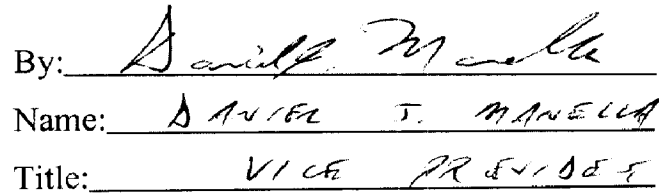 By: Daniel J. Manella
Name: DANIEL J. MANELLA
Title: VICE PRESIDENT